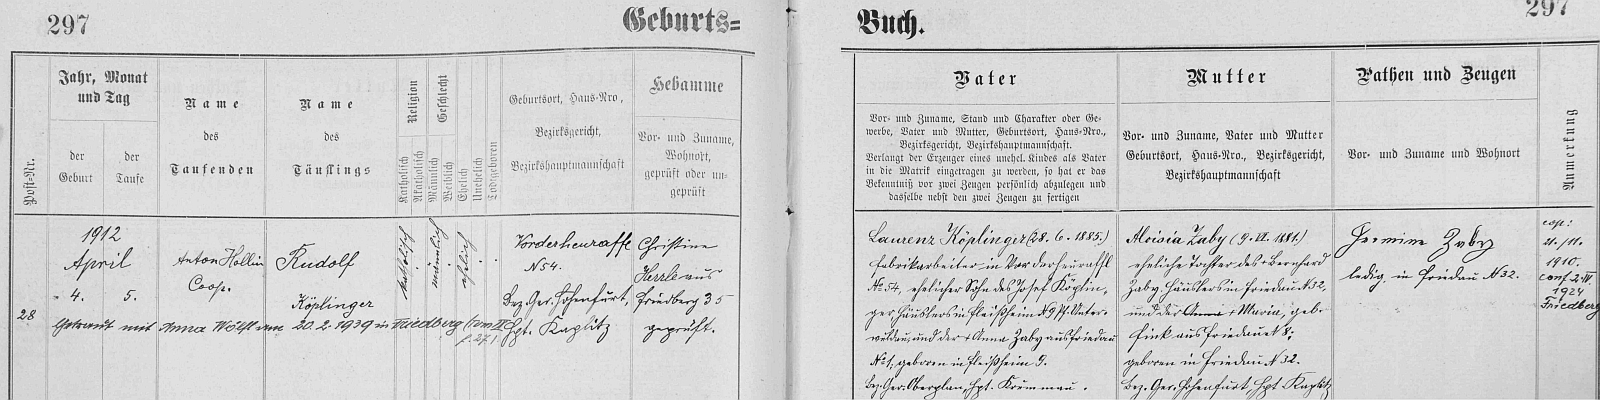 297
Geburts=
Buch.
297
Post-Nr.
Jahr, Monat
und Tag
der
Geburt
der
Taufe
Name
des
Taufenden
Name
des
Täuflings
Religion
Katholisch
Akatholisch
Geschlecht
Männlich
Weiblich
Ehelich
Unehelich
Todtgeboren
Geburtsort, Haus-Nro,
Bezirksgericht,
Bezirkshauptmannschaft
Hebamme
Vor- und Zuname,
Wohnort,
geprüft oder un-
geprüft
Vater
Vor- und Zuname, Stand und Charakter oder Ge-
werbe, Vater und Mutter, Geburtsort, Haus-Nro.,
Bezirksgericht, Bezirkshauptmannschaft.
Verlangt der Erzenger eines unehel. Kindes als Vater
in die Matrik eingetragen zu werden, so hat er das
Bekenntniß vor zwei Zeugen persönlich abzulegen und
dasselbe nebst den zwei Zeugen zu fertigen
Mutter
Vor- und Zuname, Vater und Mutter
Geburtsort, Haus-Nro., Bezirksgericht,
Bezirkshauptmannschaft
Pathen und Zeugen
Vor- und Zuname und Wohnort
Anmerkung
28
1912
April
4. 5.
Anton Hollin
Coop.
Rudolf
Köplinger
katholisch
männlich
ehelich
Vorderheuraffl
N 54.
Bez. Ger. Hohenfurt,
Hpt. Kaplitz
Christine
Herrle aus
Friedberg 35
geprüft.
Getraut mit Anna Wölfl am 20.2.1939 in Friedberg
Laurenz Köplinger (28. 6. 1885.)
Fabrikarbeiter in Vorderheuraffl
No 54, ehelicher Sohn des Josef Köplin,
ger Häuslers in Fleißheim N 9 Pf. Unter-
wuldau, und der + Anna Zaby aus Friedau
No 1; geboren in Fleißheim 9.
Bez. Ger. Oberplan, Hpt. Krummau.
Aloisia Zaby (9. VI. 1881.)
eheliche Tochter des + Bernhard
Zaby, Häuslers in Friedau N 32,
und der Anna + Maria, geb.
Fink aus Friedau N 8;
geboren in Friedau N 32.
Bez. Ger. Hohenfurt, Hpt. Kaplitz
Hermine Zaby
ledig, in Friedau N 32.
cop:
21./11.
1910.
conf. 2. IV.
1924
Friedberg